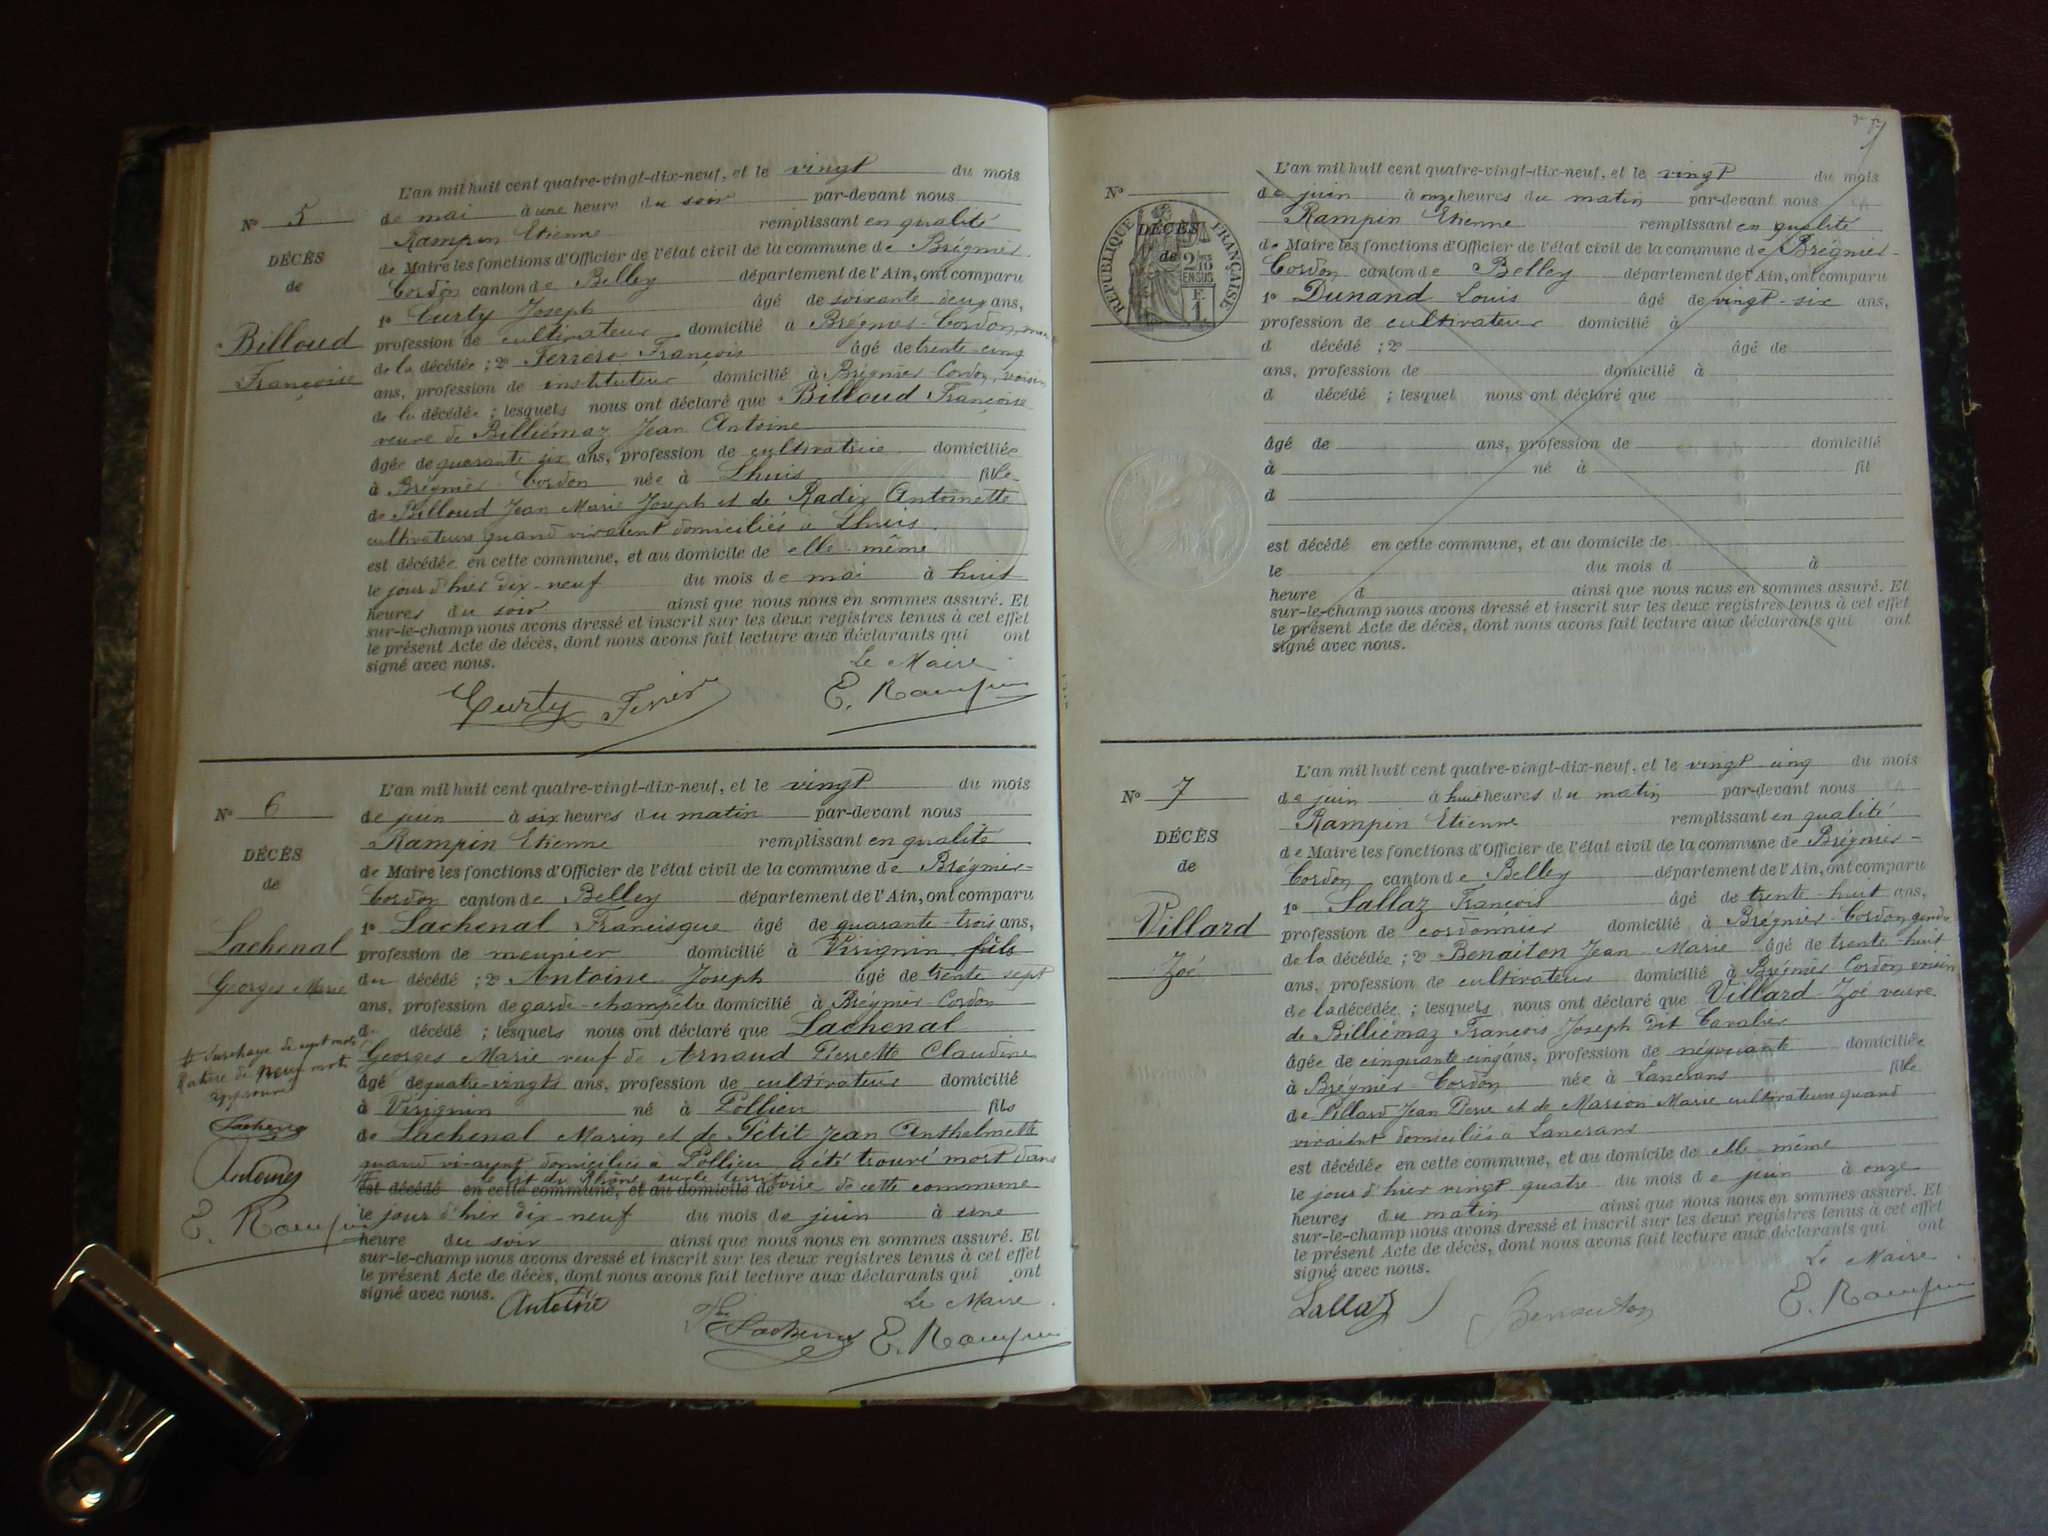 N° 5
DÉCÈS
de
Billoud
Françoise
L'an mil huit cent quatre-vingt-dix-neuf, et le vingt du mois
de mai à une heure du soir par-devant nous
Rampin Etienne remplissant en qualité
de Maire les fonctions d'Officier de l'état civil de la commune de Brégnier-
Cordon canton de Belley département de l'Ain, ont comparu
1° Curty Joseph âgé de soixante deux ans,
profession de cultivateur domicilié à Brégnier-Cordon
de la décédée ; 2° Ferrero François âgé de trente-cinq
ans, profession de instituteur domicilié à Brégnier Cordon, voisin
de la décédée ; lesquels nous ont déclaré que Billoud Françoise
veuve de Billiémaz Jean Antoine
âgée de quarante six ans, profession de cultivatrice domiciliée
à Brégnier-Cordon née à Lhuis fille
de Billoud Jean Marie Joseph et de Radix Antoinette
cultivateurs quand vivaient domiciliés à Lhuis.
est décédée en cette commune, et au domicile de elle-même
le jour d'hier dix-neuf du mois de mai à huit
heures du soir ainsi que nous nous en sommes assuré. Et
sur-le-champ nous avons dressé et inscrit sur les deux registres tenus à cet effet
le présent Acte de décès, dont nous avons fait lecture aux déclarants qui ont
signé avec nous. Le Maire
Curty E. Rampin
N° 6
DÉCÈS
de
Lachenal
Georges Marie
Surcharge de sept mots
Rature de neuf mots
approuvé
Lachenal
Antoine
E. Rampin
L'an mil huit cent quatre-vingt-dix-neuf, et le vingt du mois
de juin à six heures du matin par-devant nous
Rampin Etienne remplissant en qualité
de Maire les fonctions d'Officier de l'état civil de la commune de Brégnier-
Cordon canton de Belley département de l'Ain, ont comparu
1° Lachenal Francisque âgé de quarante-trois ans,
profession de meunier domicilié à Virignin fils
du décédé ; 2° Antoine Joseph âgé de trente sept
ans, profession de garde-champêtre domicilié à Brégnier-Cordon
d décédé ; lesquels nous ont déclaré que Lachenal
Georges Marie veuf de Arnaud Pierrette Claudine
âgé de quatre-vingts ans, profession de cultivateur domicilié
à Virignin né à Pollieu fils
de Lachenal Marin et de Petit Jean Anthelmette
quand vivaient domiciliés à Pollieu a été trouvé mort dans
le lit du Rhône sur le territoire de cette commune
est décédé en cette commune, et au domicile de
le jour d'hier dix-neuf du mois de juin à une
heure du soir ainsi que nous nous en sommes assuré. Et
sur-le-champ nous avons dressé et inscrit sur les deux registres tenus à cet effet
le présent Acte de décès, dont nous avons fait lecture aux déclarants qui ont
signé avec nous. Le Maire.
Antoine Lachenal E. Rampin
N°
RÉPUBLIQUE FRANÇAISE
DÉCÈS
de
2/10
EN SUS
F.
1
L'an mil huit cent quatre-vingt-dix-neuf, et le vingt du mois
de juin à onze heures du matin par-devant nous
Rampin Etienne remplissant en qualité
de Maire les fonctions d'Officier de l'état civil de la commune de Brégnier-
Cordon canton de Belley département de l'Ain, ont comparu
1° Dunand Louis âgé de vingt-six ans,
profession de cultivateur domicilié à
d décédé ; 2° âgé de
ans, profession de domicilié à
d décédé ; lesquel nous ont déclaré que
âgé de ans, profession de domicilié
à né à fil
d
est décédé en cette commune, et au domicile de
le du mois d à
heure d ainsi que nous nous en sommes assuré. Et
sur-le-champ nous avons dressé et inscrit sur les deux registres tenus à cet effet
le présent Acte de décès, dont nous avons fait lecture aux déclarants qui ont
signé avec nous.
N° 7
DÉCÈS
de
Villard
Zoé
L'an mil huit cent quatre-vingt-dix-neuf, et le vingt cinq du mois
de juin à huit heures du matin par-devant nous
Rampin Etienne remplissant en qualité
de Maire les fonctions d'Officier de l'état civil de la commune de Brégnier-
Cordon canton de Belley département de l'Ain, ont comparu
1° Lallaz François âgé de trente-huit ans,
profession de cordonnier domicilié à Brégnier-Cordon gendre
de la décédée ; 2° Benaiton Jean-Marie âgé de trente-huit
ans, profession de cultivateur domicilié à Brégnier Cordon voisin
de la décédée ; lesquels nous ont déclaré que Villard Zoé veuve
de Billiémaz François Joseph dit Cavalier
âgée de cinquante-cinq ans, profession de négociante domiciliée
à Brégnier-Cordon née à Lancrans fille
de Villard Jean Pierre et de Marion Marie cultivateurs quand
vivaient domiciliés à Lancrans
est décédée en cette commune, et au domicile de elle-même
le jour d'hier vingt quatre du mois de juin à onze
heures du matin ainsi que nous nous en sommes assuré. Et
sur-le-champ nous avons dressé et inscrit sur les deux registres tenus à cet effet
le présent Acte de décès, dont nous avons fait lecture aux déclarants qui ont
signé avec nous. Le Maire.
Lallaz Benaiton E. Rampin